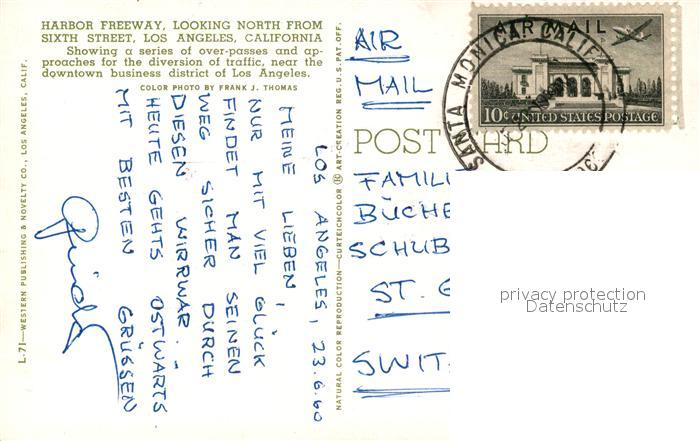 HARBOR FREEWAY, LOOKING NORTH FROM
SIXTH STREET, LOS ANGELES, CALIFORNIA
Showing a series of over-passes and ap-
proaches for the diversion of traffic, near the
downtown business district of Los Angeles.
COLOR PHOTO BY FRANK J. THOMAS
L.71—WESTERN PUBLISHING & NOVELTY CO., LOS ANGELES, CALIF.
LOS ANGELES, 23.6.60
MEINE LIEBEN,
NUR MIT VIEL GLÜCK
FINDET MAN SEINEN
WEG SICHER DURCH
DIESEN WIRRWAR.
HEUTE GEHTS OSTWÄRTS
MIT BESTEN GRÜSSEN
NATURAL COLOR REPRODUCTION—CURTEICHCOLOR ® ART-CREATION REG. U.S. PAT. OFF.
AIR
MAIL
POST CARD
AIR MAIL
10¢ UNITED STATES POSTAGE
SANTA MONICA CALIF
FAMILI
BÜCHE
SCHUB
ST. G
SWIT
privacy protection
Datenschutz